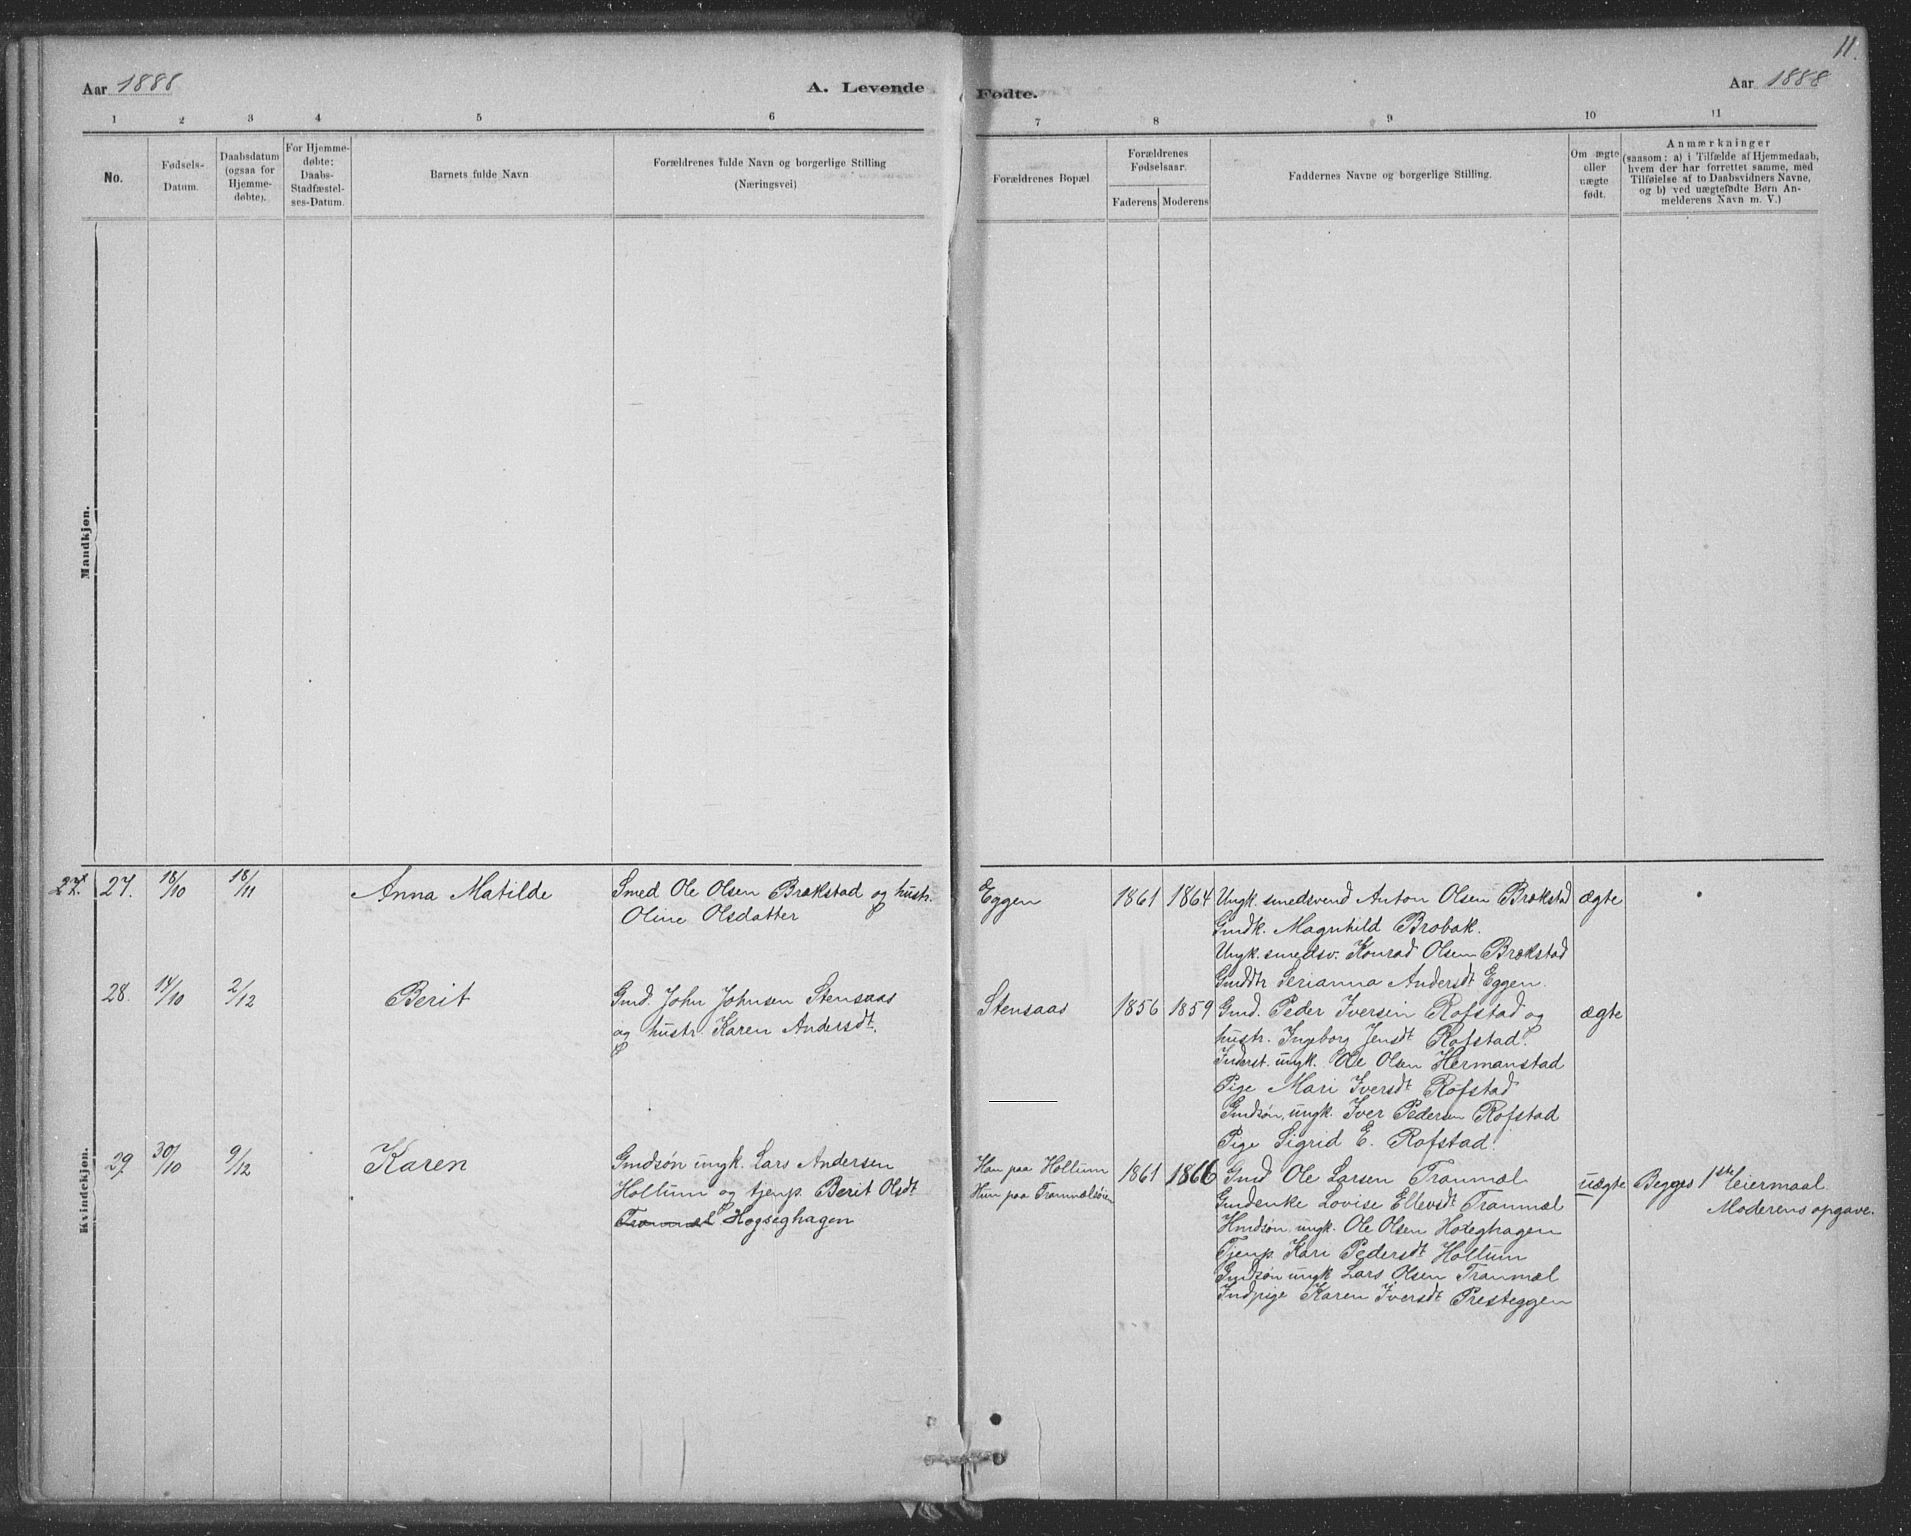 11.
Aar 1888
A. Levende
Fødte.
Aar 1888
1 2 3 4 5 6 7 8 9 10 11
No.
Fødsels-
Datum.
Daabsdatum
(ogsaa for
Hjemme-
døbte).
For Hjemme-
døbte:
Daabs-
Stadfæstel-
ses-Datum.
Barnets fulde Navn
Forældrenes fulde Navn og borgerlige Stilling
(Næringsvei)
Forældrenes Bopæl
Forældrenes
Fødselsaar.
Faderens Moderens
Faddernes Navne og borgerlige Stilling.
Om ægte
eller
uægte
født.
Anmærkninger
(saasom: a) i Tilfælde af Hjemmedaab,
hvem der har forrettet samme, med
Tilføielse af to Daabsvidners Navne,
og b) ved uægtefødte Børn An-
melderens Navn m. V.)
Mandkjøn.
Kvindekjøn.
27. 27. 18/10 18/11 Anna Matilde
Smed Ole Olsen Brækstad og hustr.
Oline Olsdatter
Eggen 1861 1864
Ungk. smedsvend Anton Olsen Brækstad
Gmdk. Magnhild Brobak.
Ungk. smedsv. Konrad Olsen Brækstad
Gmddtr Serianna Andersdt Eggen.
ægte
28. 14/10 2/12 Berit
Gmd. John Johnsen Stensaas
og hustr. Karen Andersdt.
Stensaas 1856 1859
Gmd. Peder Iversen Rofstad og
hustr. Ingeborg Jensdt Rofstad.
Inderst. ungk. Ole Olsen Hermanstad
Pige Mari Iversdt Rofstad
Gmdsøn, ungk. Iver Pedersen Rofstad
Pige Sigrid E. Rofstad.
ægte
29 30/10 9/12 Karen
Gmdsøn ungk. Lars Andersen
Hollum og tjenp. Berit Olsdt
Tranmæl Hogseghagen
Han paa Hollum
Hun paa Tranmælsøren
1861 1866
Gmd Ole Larsen Tranmæl
Gmdenke Lovise Ellevsdt Tranmæl
Hmdsøn ungk. Ole Olsen Hoxeghagen
Tjenp. Kari Pedersdt Hollum
Gmdsøn ungk Lars Olsen Tranmæl
Indpige Karen Iversdt Presteggen
uægte
Begges 1ste leiermaal.
Moderens opgave.